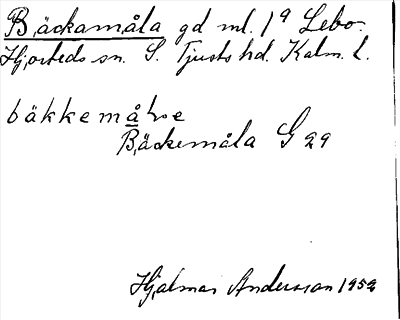 Bäckamåla gd ml. 1ª Lebo.
Hjorteds sn. S. Tjusts hd. Kalm. l.
bäkkemå
Bäckemåla G 29
Hjalmar Andersson 1952